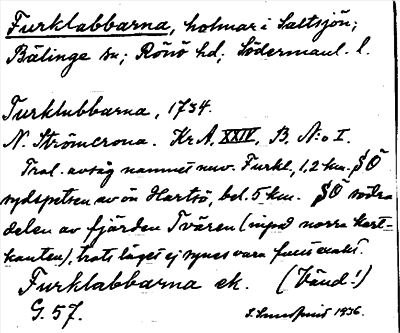 Furklabbarna, holmar i Saltsjön;
Bälinge sn; Rönö hd; Södermanl. l.
Furklubbarna, 1734.
N. Strömcrona. Kr.A. XXIV, B. N:o 1.
Trol. avsåg namnet nuv. Furkl., 1,2 km. SÖ
sydspetsen av ön Hartsö, bel. 5 km. SÖ södra
delen av fjärden Tvären (inpå norra kart-
kanten), trots läget ej synes vara fullt exakt.
Furklabbarna ek. (Vänd!)
G. 57. 1936.